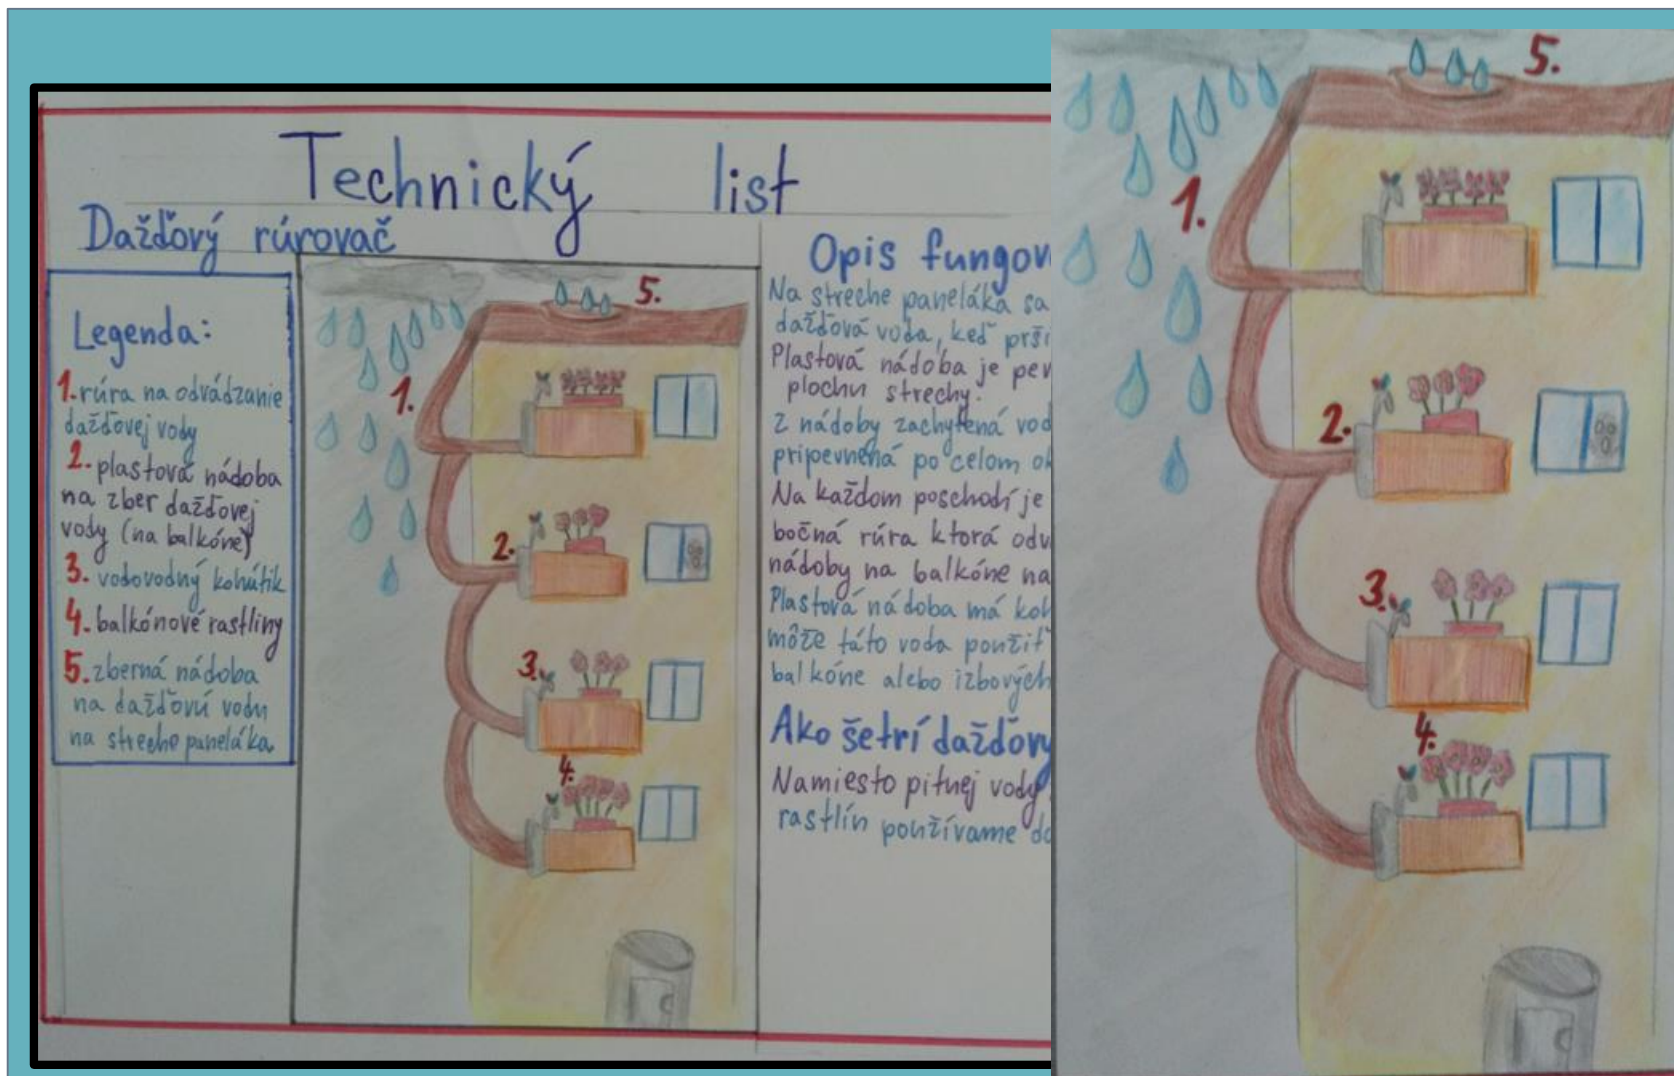 Technický list
Dažďový rúrovač
Legenda:
1. rúra na odvádzanie
dažďovej vody
2. plastová nádoba
na zber dažďovej
vody (na balkóne)
3. vodovodný kohútik
4. balkónové rastliny
5. zberná nádoba
na dažďovú vodu
na streche paneláka
1.
2.
3.
4.
5.
Opis fungov
Na streche paneláka sa
dažďová voda, keď prší
Plastová nádoba je pev
plochu strechy.
Z nádoby zachytená vod
pripevnená po celom o
Na každom poschodí je
bočná rúra ktorá odv
nádoby na balkóne na
Plastová nádoba má koh
môže táto voda použiť
balkóne alebo izbových
Ako šetrí dažďový
Namiesto pitnej vody
rastlín používame do
5.
1.
2.
3.
4.